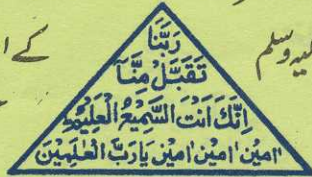 علیہ وسلم
کے ا
رَبَّنَا
تَقَبَّلْ مِنَّآ
اِنَّکَ اَنْتَ السَّمِیْعُ الْعَلِیْمُ
اٰمین' اٰمین' اٰمین یَارَبَّ الْعٰلَمِیْنَ